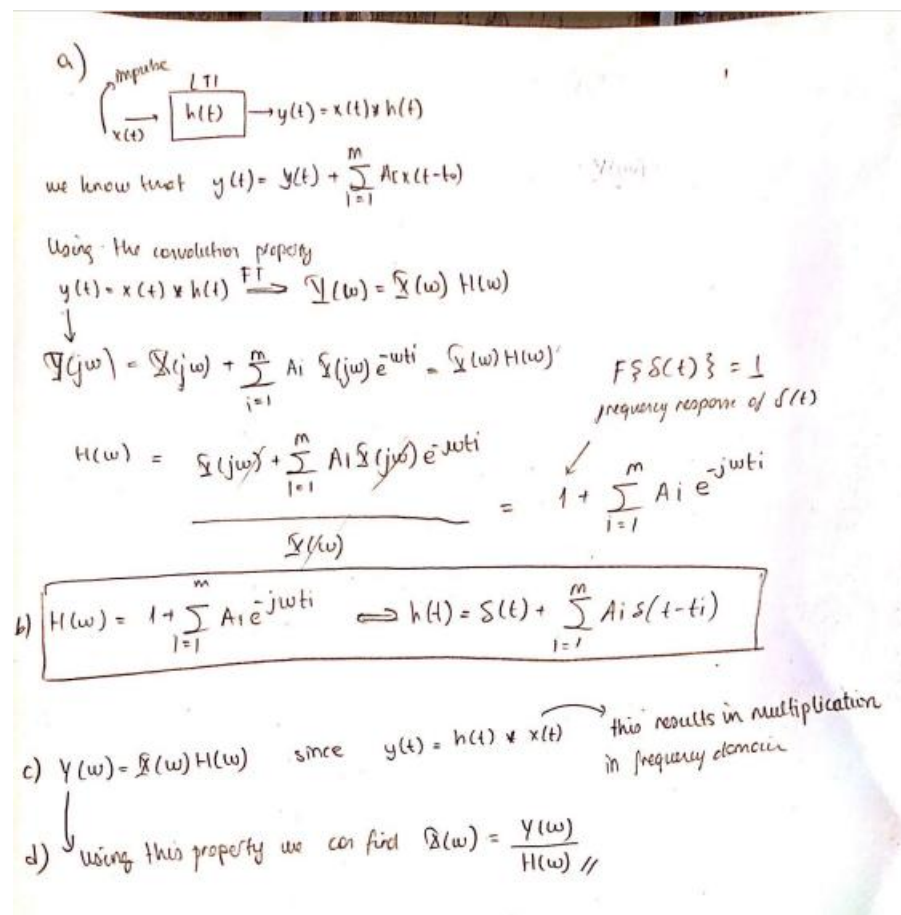 a) impulse
LTI
x(t) → h(t) → y(t) = x(t) * h(t)
we know that y(t) = y(t) + m∑i=1 Ai x(t-to)
Using the convolution property
y(t) = x(t) * h(t) FT⟹ Y(w) = X(w) H(w)
↓
Y(jw) = X(jw) + m∑i=1 Ai X(jw) e^-wti = X(w) H(w)
F{δ(t)} = 1
frequency response of δ(t)
H(w) = X(jw) + m∑i=1 Ai X(jw) e^-jwti / X(w) = 1 + m∑i=1 Ai e^-jwti
b) H(w) = 1 + m∑i=1 Ai e^-jwti ⟺ h(t) = δ(t) + m∑i=1 Ai δ(t-ti)
c) Y(w) = X(w) H(w) since y(t) = h(t) * x(t) → this results in multiplication
in frequency domain
d) using this property we can find X(w) = Y(w) / H(w) //